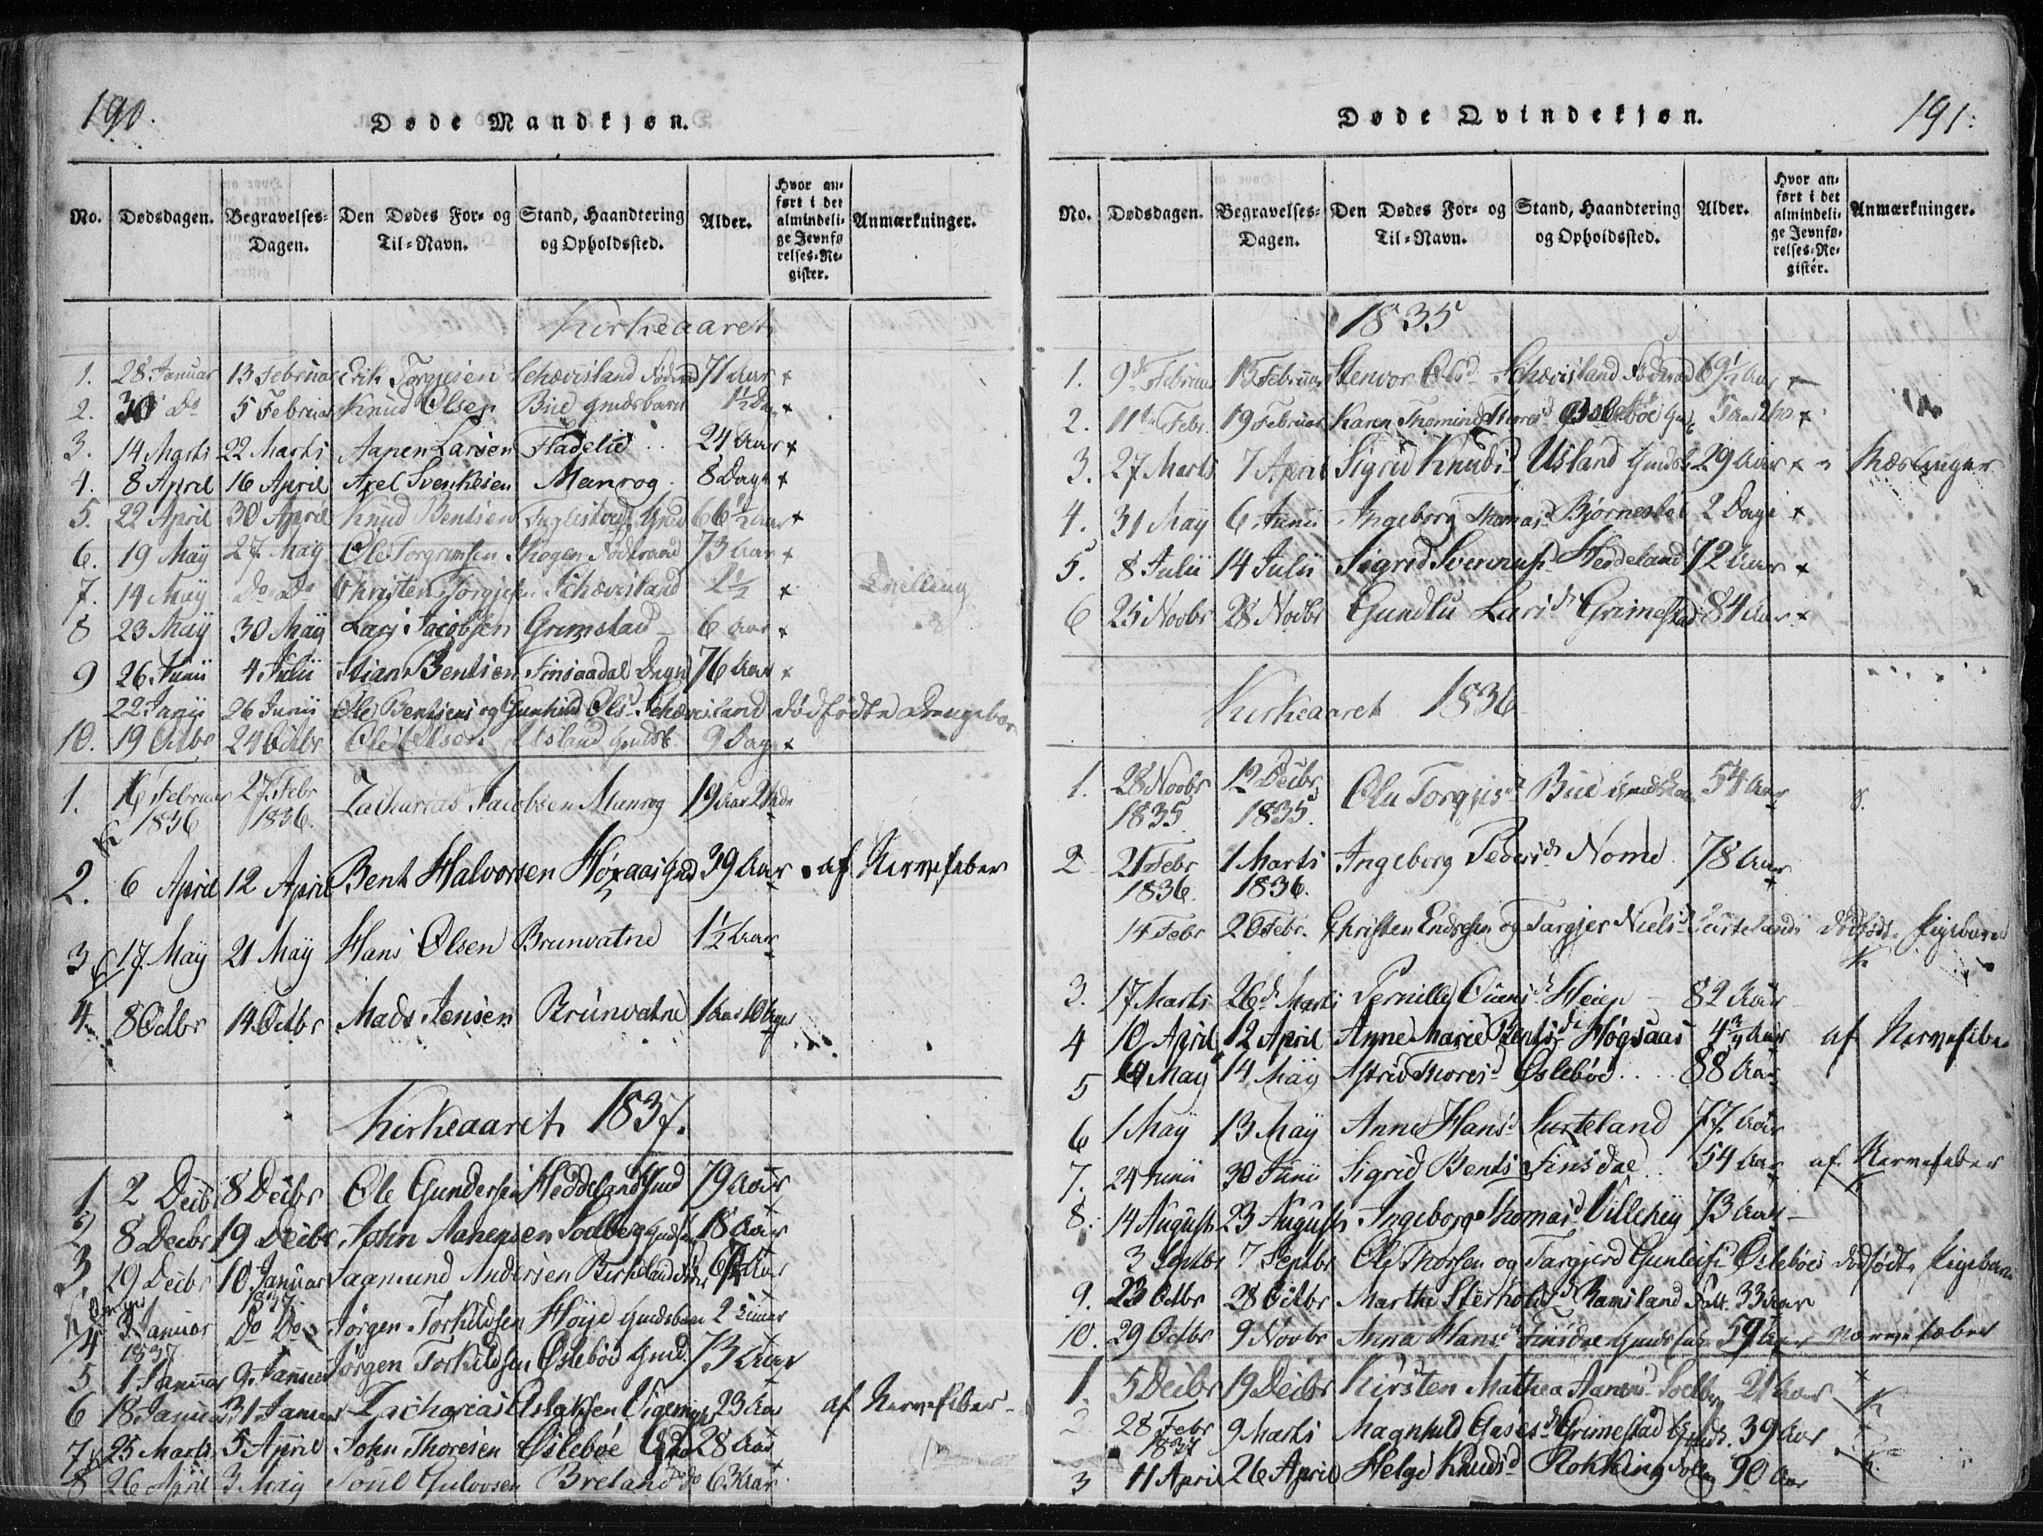 190.
Døde Mandkjøn.
No. Dødsdagen. Begravelses-Dagen. Den Dødes For- og Til-Navn. Stand, Haandtering og Opholdssted. Alder. Hvor anført i det almindelige Jevnførelses-Register. Anmærkninger.
Kirkeaaret
1. 28 Januar 13 Februar Erik Torgjesen Schævisland Födraad 71 Aar +
2. 30 Do 5 Februar Knud Olsen Bue Gmdsbarn 1½ Dag +
3. 14 Marts 22 Marts Aanen Larsen Fladelid 24 Aar +
4. 8 April 16 April Axel Svenkesen Manrog 8 Dage +
5. 22 April 30 April Knud Bentsen Gmd 66½ Aar +
6. 19 May 27 May Ole Torgrimsen Skogen Födraad 73 Aar +
7. 14 May Do Do Christen Torgjesen Schævisland 2½ + Tvilling
8 23 May 30 May Lars Jacobsen Grimstad 6 Aar +
9 26 Junii 4 Julii Stian Bentsen Finsaadal 76 Aar +
22 Junii 26 Junii Ole Bentsens og Gunhild Olsd. Schævisland dödfödte Drengebarn
10. 19 Octbr 24 Octbr Ole Olsen Usland Gmdsb. 9 Dage +
1. 16 Februar 1836 27 Febr 1836. Zacharias Jacobsen Manrog 19 Aar
2. 6 April 12 April Bent Halvorsen Høgaas Gmd 39 Aar af Nervefeber
3 17 May 21 May Hans Olsen Brunvatne 1½ Aar
4. 8 Octbr 14 Octbr Mads Jensen Brunvatne 1 Aar 10 Uger
Kirkeaaret 1837.
1 2 Decbr 8 Decbr Ole Gundersen Heddeland Gmd 79 Aar
2 8 Decbr 19 Decbr John Aanensen Solberg 18 Aar
3 29 Decbr 10 Januar 1837 Aagmund Andersen Birkeland
4 3 Januar 1837 Do Do Jørgen Torkildsen Høye Gmdsbarn 2
5 1 Januar 9 Januar Jørgen Torkildsen Oslebøe Gmd. 73 Aar
6 18 Januar 31 Januar Zacharias Aslaksen Vigemyr 23 Aar af Nervefeber
7 25 Marts 5 April John Thoresen Oslebøe 28 Aar
8 26 April 3 May Halvorsen Breland 63 Aar
191.
Døde Qvindekjøn.
No. Dødsdagen. Begravelses-Dagen. Den Dødes For- og Til-Navn. Stand, Haandtering og Opholdssted. Alder. Hvor anført i det almindelige Jevnførelses-Register. Anmærkninger.
1835
1. 9de Februar 13 Februar Stenvor Olsd. Schævisland Födraad 69½ Aar +
2. 11te Febr. 19 Februar Karen Thomine Thoresd Oslebøe +
3. 27 Marts 7 April Sigrid Knudsd. Usland Gmdsk. 29 Aar + Mæslinger
4. 31 May 6 Junii Ingeborg Thomasd. Bjørnestøl 2 Dage +
5. 8 Julii 14 Julii Sigrid Svennusd. Heddeland 72 Aar +
6 25 Novbr 28 Novbr Gundlu Larsd. Grimestad 84 Aar. +
Kirkeaaret 1836
1. 28 Novbr 1835. 12 Decbr 1835. Olu Torgjesd. Bue 54 Aar
2 21 Febr 1836. 1 Marts 1836. Ingeborg Pedersd. Nome 78 Aar
14 Febr 20 Febr. Christen Endresen og Targjer Nielsd. Lurteland dödfödt Pigebarn
3. 17 Marts 26d. Marts Pernille Ouensd. Heien 82 Aar
4 10 April 12 April Anne Marie Bentsd. Høgaas 4¾ Aar af Nervefeber
5 May 14 May Astrid Thoresd. Oslebøe 88 Aar
6 1 May 13 May Anne Hansd. Lurteland 77 Aar
7. 24 Junii 30 Junii Sigrid Bentsd Finsdal 54 Aar af Nervefeber
8. 14 August 23 August Ingeborg Thomasd. Villehey 73 Aar
3 Septbr 7 Septbr Ole Thorsen og Targjerd Gunleifsd Oslebøes dödfödte Pigebarn
9. 23 Octbr 28 Octbr Marthe Sterkoldsd. Ramsland 33 Aar
10. 29 Octbr 9 Novbr Anna Hansd. Finsdal 59 Aar Nervefeber
1. 5 Decbr 19 Decbr Kirsten Mathea Aanensd. Solberg 21 Aar
2 28 Febr 1837 9 Marts Magnhild Gasesd. Grimestad 39 Aar
3 11 April 26 April Helge Knudsd. Rokking 90 Aar